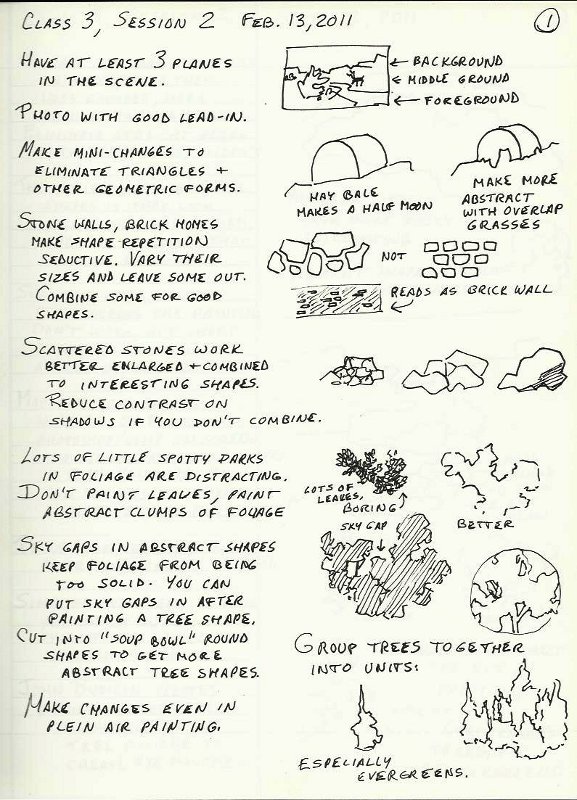 CLASS 3, SESSION 2 FEB. 13, 2011
1
HAVE AT LEAST 3 PLANES
IN THE SCENE.
BACKGROUND
MIDDLE GROUND
FOREGROUND
PHOTO WITH GOOD LEAD-IN.
MAKE MINI-CHANGES TO
ELIMINATE TRIANGLES +
OTHER GEOMETRIC FORMS.
HAY BALE
MAKES A HALF MOON
MAKE MORE
ABSTRACT
WITH OVERLAP
GRASSES
STONE WALLS, BRICK HOMES
MAKE SHAPE REPETITION
SEDUCTIVE. VARY THEIR
SIZES AND LEAVE SOME OUT.
COMBINE SOME FOR GOOD
SHAPES.
NOT
READS AS BRICK WALL
SCATTERED STONES WORK
BETTER ENLARGED + COMBINED
TO INTERESTING SHAPES.
REDUCE CONTRAST ON
SHADOWS IF YOU DON'T COMBINE.
LOTS OF LITTLE SPOTTY DARKS
IN FOLIAGE ARE DISTRACTING.
DON'T PAINT LEAVES, PAINT
ABSTRACT CLUMPS OF FOLIAGE
LOTS OF
LEAVES,
BORING
BETTER
SKY GAP
SKY GAPS IN ABSTRACT SHAPES
KEEP FOLIAGE FROM BEING
TOO SOLID. YOU CAN
PUT SKY GAPS IN AFTER
PAINTING A TREE SHAPE.
CUT INTO "SOUP BOWL" ROUND
SHAPES TO GET MORE
ABSTRACT TREE SHAPES.
GROUP TREES TOGETHER
INTO UNITS:
MAKE CHANGES EVEN IN
PLEIN AIR PAINTING.
ESPECIALLY
EVERGREENS.